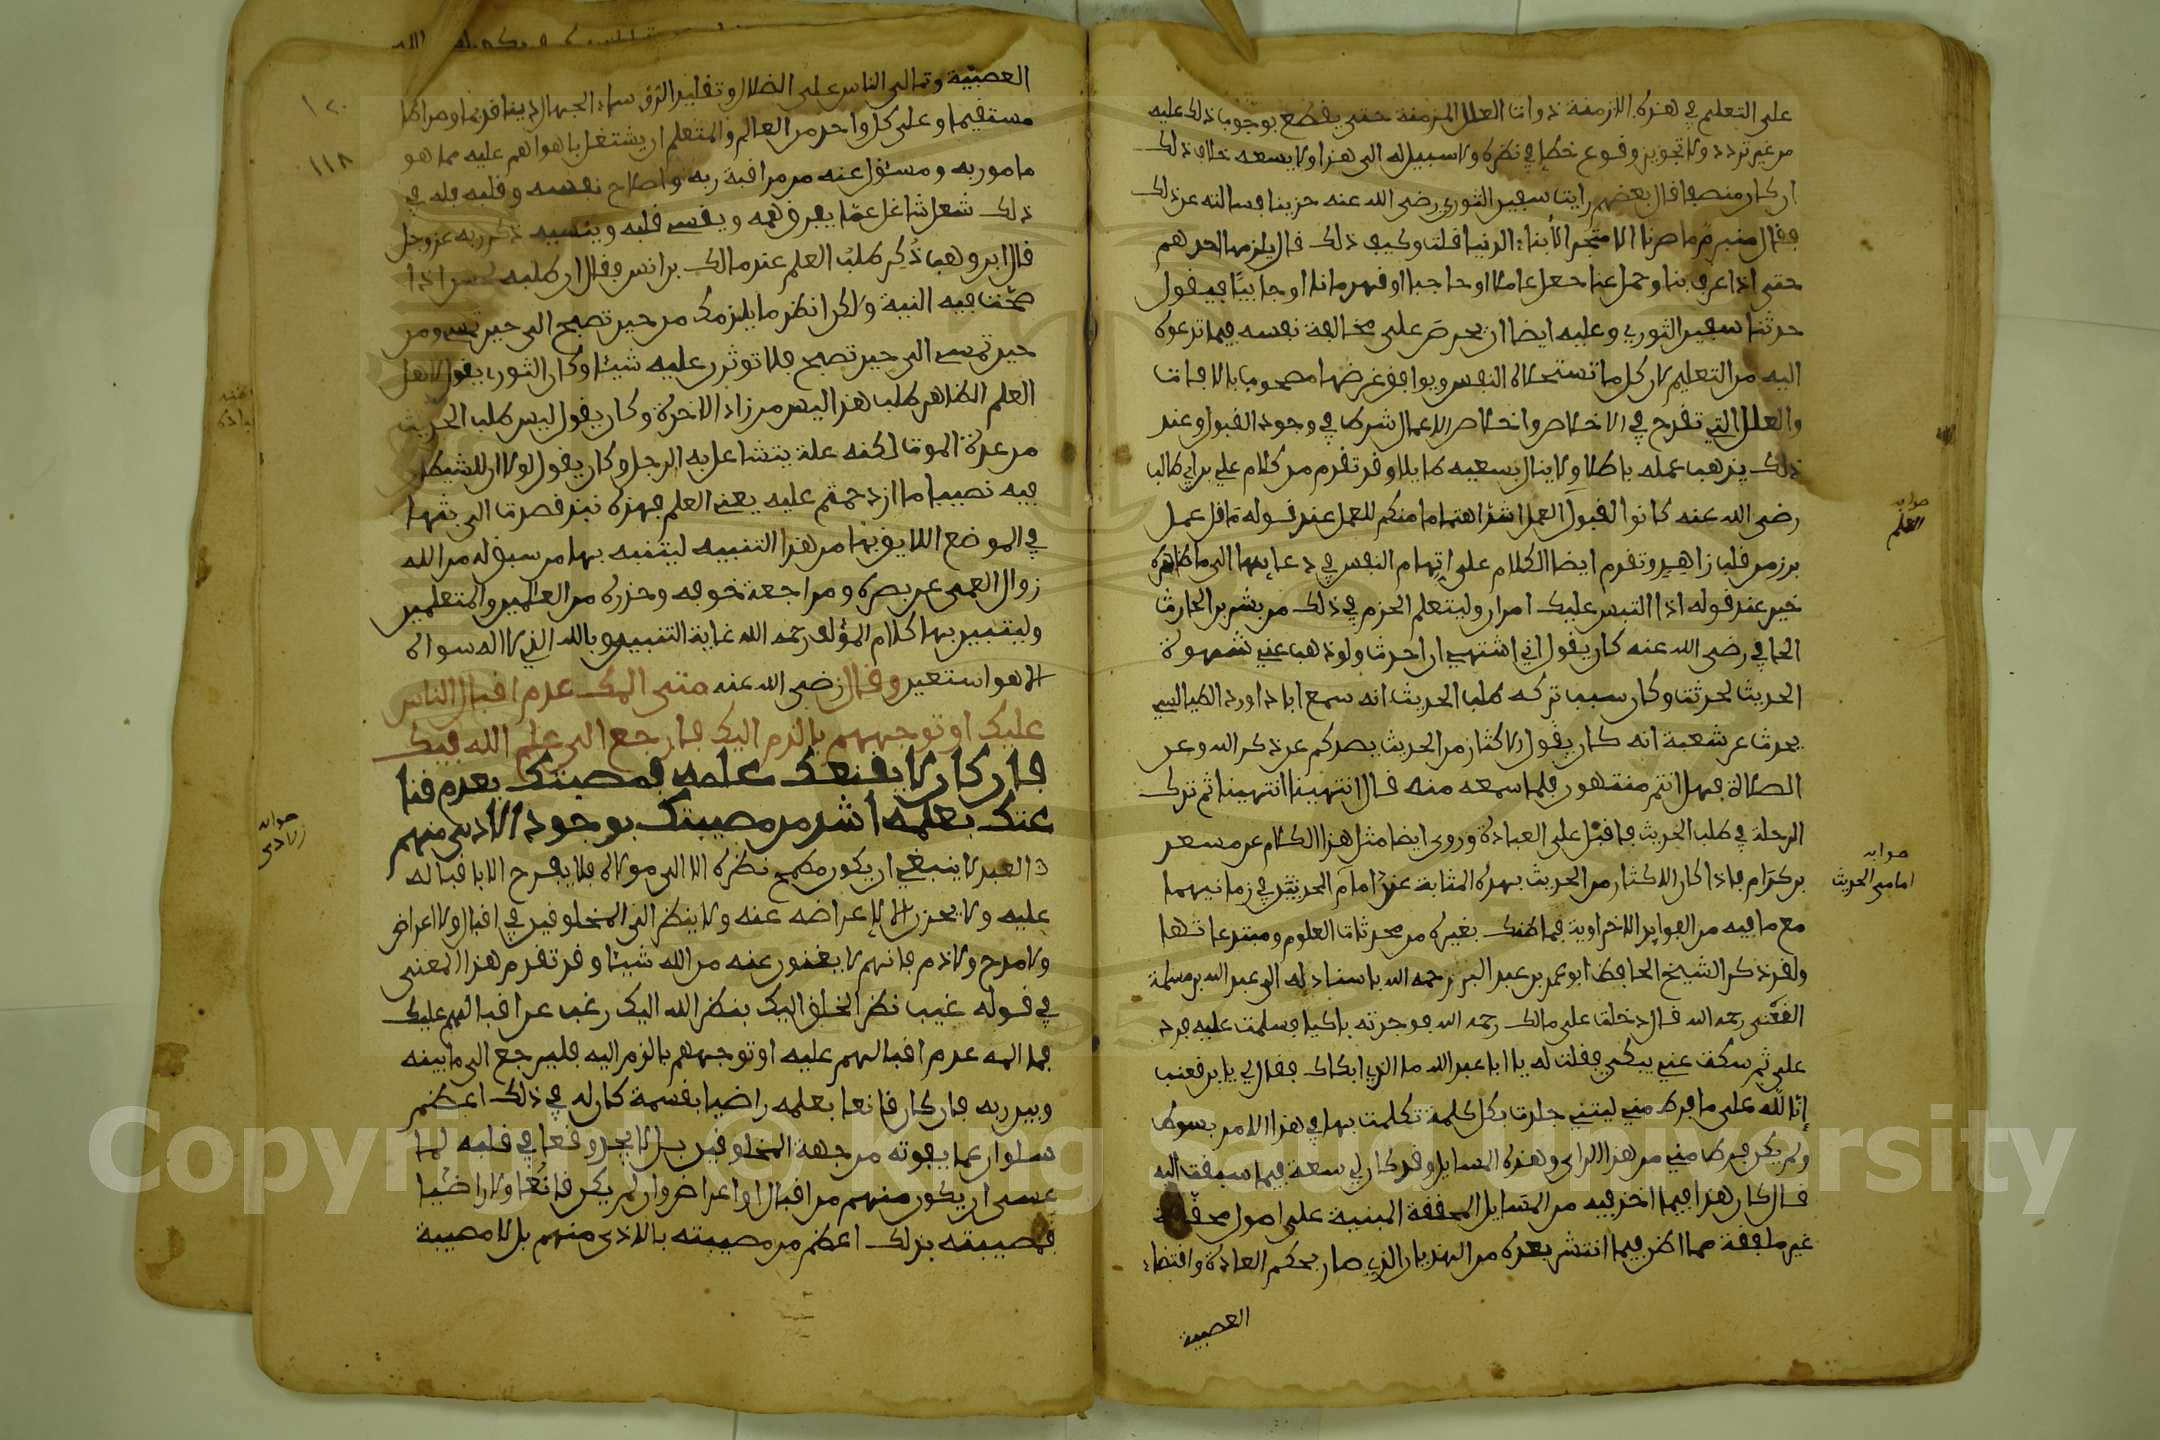 على التعليم في هذه الازمنة ذوات العلل المزمنة حتى يقطع بوجوب ذلك عليه
من غير تردد ولا تجويز وقوع خطإ في نظره ولا سبيل له الى هذا ولا يسعه خلاف ذلك
ان كان منصفا قال بعضهم رايت سفين الثوري رضى الله عنه حزينا فسالته عن ذلك
فقال متبرم ما صرنا الا متجر الأبناء الدنيا قلت وكيف ذلك قال يلزمنا احدهم
حتى اذا عرف بنا وحمل عنا جعل عاملا او حاجبا او قهرمانا او جابيًا فيقول
حدثنا سفين الثوري وعليه ايضا ان يحرص على مخالفة نفسه فيما تدعوه
اليه من التعليم لان كل ما تستحلاه النفس ويوافق غرضها مصحوب بالافات
والعلل التي تقدح في الاخلاص واخلاص الاعمال شرط في وجود القبول وعند
ذلك يذهب عمله باطلا ولا ينال بسعيه طايلا وقد تقدم من كلام علي بن ابي طالب
رضى الله عنه كانوا لقبول العمل اشد اهتماما منكم للعمل عند قوله ما قل عمل
برز من قلب زاهد وتقدم ايضا الكلام على اتهام النفس في دعايها الى ما ظاهره
خير عند قوله اذا التبس عليك امران وليتعلم الحزم في ذلك من بشر بن الحارث
الحافي رضى الله عنه كان يقول اني اشتهي ان احدث ولو ذهب عني شهوة
الحديث لحدثت وكان سبب تركه طلب الحديث انه سمع ابا داود الطيالسي
يحدث عن شعبة انه كان يقول الاكثار من الحديث يصدكم عن ذكر الله وعن
الصلاة فهل انتم منتهون فلما سمعه منه قال انتهينا انتهينا ثم ترك
الرحلة في طلب الحديث واقبل على العبادة وروى ايضا مثل هذا الكلام عن مسعر
بن كدام فاذا كان الاكثار من الحديث بهذه المثابة عند امام الحديث في زمانيهما
مع ما فيه من الفوايد الاخراوية فما ظنك بغيره من محدثات العلوم ومبتدعاتها
ولقد ذكر الشيخ الحافظ ابو عمر بن عبد البر رحمه الله باسناد له الى عبد الله بن مسلمة
القعنبى رحمه الله قال دخلت على مالك رحمه الله فوجدته باكيا فسلمت عليه فرد
على ثم سكت عني يبكي فقلت له يا ابا عبد الله ما الذي ابكاك فقال لي يا بن قعنب
إنا لله على ما فرط مني ليتني جلدت بكل كلمة تكلمت بها في هذا الامر بسوط
ولم يكن فرط مني من هذا الراى وهذه المسايل وقد كان لي سعة فيما سبقت اليه
قال كان هذا فيما اخذ فيه من المسايل المحققة المبنية على اصول محققة
غير ملفقة مما اظن فيما انتشر بعده من الهذيان الذي صار بحكم العادة واقتضاء
العصبية
صوابه
العلم
صوابه
امامى الحديث
١٢٠
١١٨
العصبية وتمالى الناس على الضلال وتقليد الجهال دينا قويما وصراطا
مستقيما وعلى كل واحد من العالم والمتعلم ان يشتغل باهو اهم عليه مما هو
مامور به ومسئول عنه من مراقبة ربه واصلاح نفسه وقلبه فله في
ذلك شغل شاغل عما يفرق همه ويقسى قلبه وينسيه ذكر ربه عز وجل
قال ابن وهب ذُكِر طلب العلم عند مالك بن انس فقال ان طلبه لحسن اذا
صحت فيه النية ولكن انظر ما يلزمك من حين تصبح الى حين تمسى ومن
حين تمسى الى حين تصبح فلا توثرن عليه شيئا وكان الثوري يقول لاهل
العلم الظاهر طلب هذا ليس من زاد الاخرة وكان يقول ليس طلب الحديث
من عدة الموت لكنه علة يتشاغل به الرجل وكان يقول لولا ان للشيطان
فيه نصيبا ما ازدحمتم عليه يعنى العلم فهذه نبذ قصدت الى بثها
في الموضع اللايق بها من هذا التنبيه ليتنبه بها من سبق له من الله
زوال العمى عن بصره ومراجعة خوفه وحذره من العالمين والمتعلمين
وليتبين بها كلام المؤلف رحمه الله غاية التنبيه وبالله الذي لا اله سواه
الا هو استعين وقال رضى الله عنه متى المك عدم اقبال الناس
عليك او توجههم بالذم اليك فارجع الى علم الله فيك
فان كان لا يقنعك علمه فمصيبتك بعدم قنا
عتك بعلمه اشد من مصيبتك بوجود الاذى منهم
العبد لا ينبغي ان يكون مطمح نظره الا الى مولاه فلا يفرح الا باقباله
عليه ولا يحزن الا لإعراضه عنه ولا ينظر الى المخلوقين في اقبال ولا اعراض
ولا مدح ولا ذم فانهم لا يغنون عنه من الله شيئا وقد تقدم هذا المعنى
في قوله غيب نظر الخلق اليك بنظر الله اليك وغب عن اقبالهم عليك
فما المه عدم اقبالهم عليه او توجههم بالذم اليه فليرجع الى ما بينه
وبين ربه فان كان قانعا بعلمه راضيا بقسمة كان له في ذلك اعظم
سلوان عما يفوته من جهة المخلوقين بل لا يجد وقعا في قلبه لما
عسى ان يكون منهم من اقبال او اعراض وان لم يكن قانعًا ولا راضيًا
فمصيبته بذلك اعظم من مصيبته بالاذى منهم بل لا مصيبة
صوابه
زيادى
Copyright © King Saud University